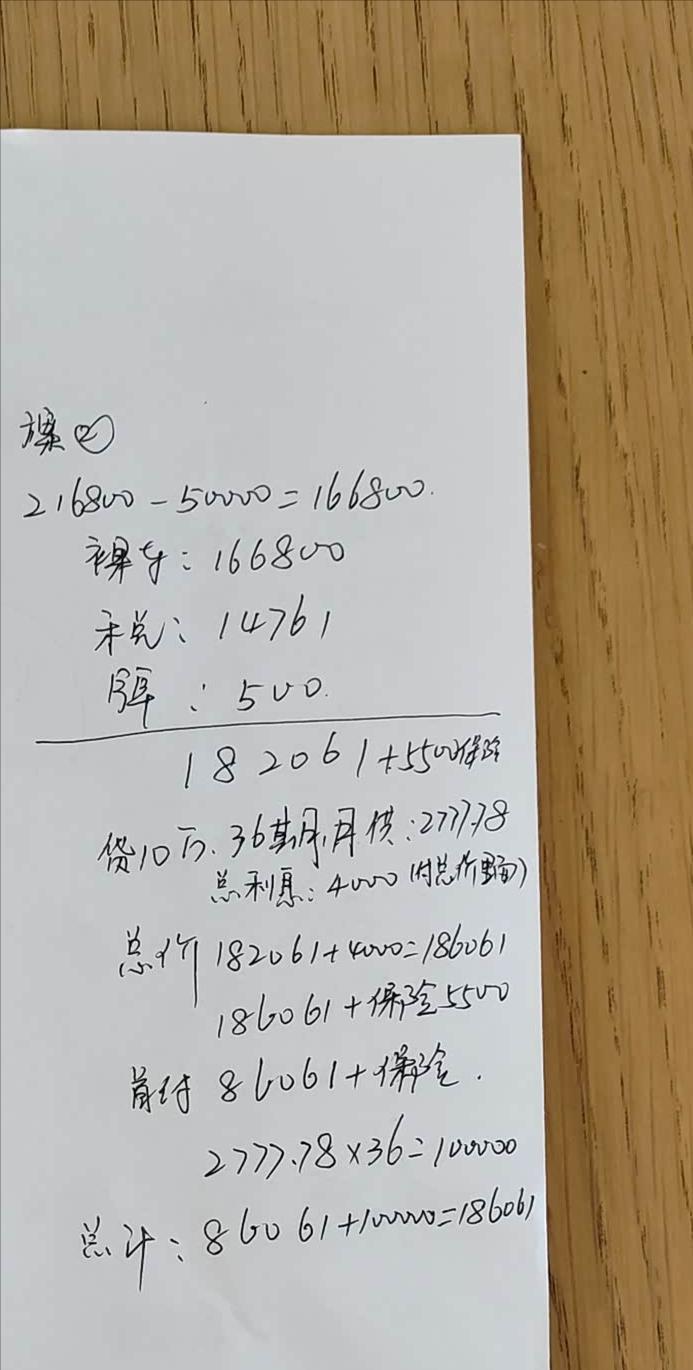 方案②
216800-50000=166800.
裸车:166800
税:14761
牌:500.
182061+5500保险
贷10万.36期,月供:2777.78
总利息:4000(付总价里面)
总价182061+4000=186061
186061+保险5500
首付86061+保险.
2777.78×36=100000
总计:86061+100000=186061